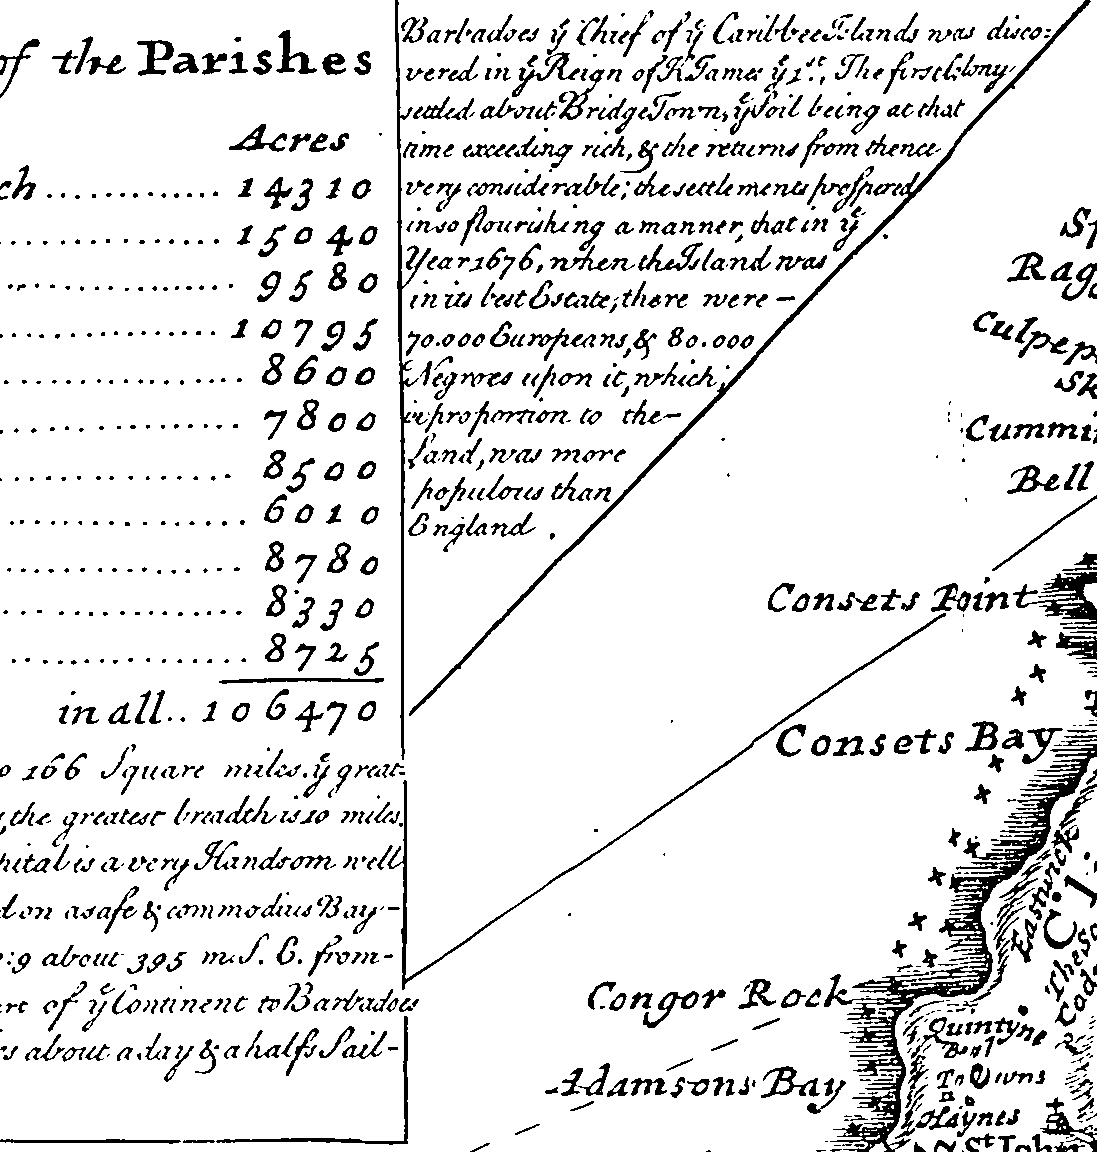 of the Parishes
Acres
ch .......... 14310
.......... 15040
.......... 9580
.......... 10795
.......... 8600
.......... 7800
.......... 8500
.......... 6010
.......... 8780
.......... 8330
.......... 8725
in all.. 106470
166 Square miles. yͤ great-
the greatest breadth is 10 miles.
pital is a very Handsom well
d on a safe & commodius Bay-
:9 about 395 m. S. E. from-
art of yͤ Continent to Barbadoes
rs about a day & a halfs Sail-
Barbadoes yͤ Chief of yͤ Caribbee Islands was disco:
vered in yͤ Reign of K James yͤ 1st. The first Colony
settled about Bridge Town, yͤ Soil being at that
time exceeding rich, & the returns from thence
very considerable; the settlements prospered
in so flourishing a manner, that in yͤ
Year 1676, when the Island was
in its best Estate; there were -
70.000 Europeans, & 80.000
Negroes upon it, which,
in proportion to the -
Land, was more
populous than
England.
Sp
Ragg
Culpep
Sk
Cummi
Bell
Consets Point
Consets Bay
Eastwick
Cli
These
rode
Congor Rock
Quintyne
Adamsons Bay
Haynes
St. John